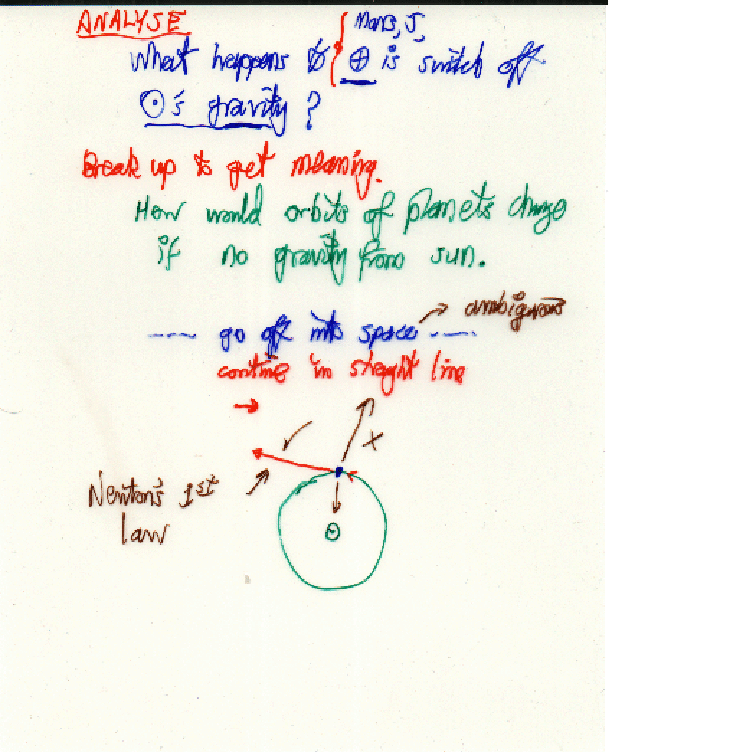 ANALYSE
Mars, J,
What happens to ⊕ is switch off
⊙'s gravity ?
Break up to get meaning.
How would orbits of planets change
if no gravity from sun.
---- go off into space ----
→ ambiguous
continue in straight line
X
Newton's 1st
law
⊙